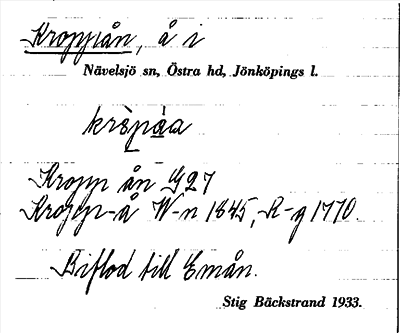 Kroppån, å i
Nävelsjö sn, Östra hd, Jönköpings l.
Kropp ån G27
Kropp-å W-n 1845, R-g 1770.
Biflod till Emån.
Stig Bäckstrand 1933.